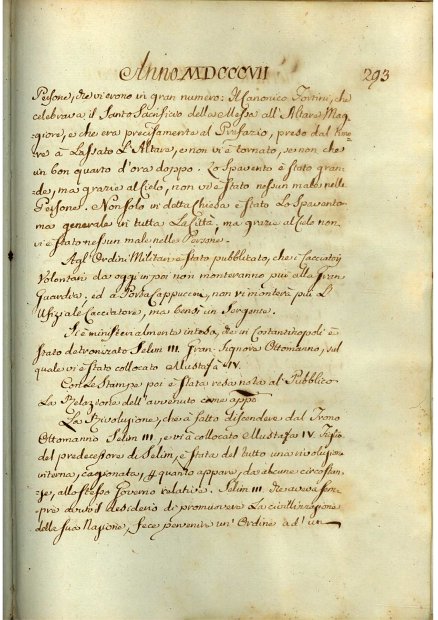 Anno MDCCCVII 293
Persone, che vi erono in gran numero: Il Canonico Fortini, che
celebrava il Santo Sacrificio della Messa all'Altare Mag=
giore, e che era precisamente al Prefazio, preso dal timo=
re à Lassato L'Altare, e non vi è tornato, se non che
un bon quarto d'ora doppo. Lo Spavento è stato gran=
de, ma grazie al Cielo, non vi è stato nessun male nelle
Persone. Non solo in detta Chiesa è stato Lo Spavento
ma generale in tutta La Città, ma grazie al Cielo non
vi è stato nessun male nelle Persone.
Agl'Ordini Militari è stato pubblicato, che i Cacciatori
Volontari da oggi in poi non monteranno più alla Gran
Guardia, ed a Porta Cappuccini, non vi monterà più L'
Ufizzale Cacciatore, ma bensì un Sergente.
Si è ministerialmente inteso, che in Costantinopoli è
stato detronizato Selim III. Gran Signore Ottomanno, sul
quale vi è stato collocato Mustafà IV.
Con Le Stampe poi è stata resa nota al Pubblico
La Relazione dell'avvenuto come app.o
La Rivoluzione, che à fatto discendere dal Trono
Ottomanno Selim III, e vi à collocato Mustafà IV Figlio
del predecessore di Selim, è stata del tutto una rivoluzione
interna, cagionata, p quanto appare, da alcune circostan=
ze, allo stesso Governo relative. Selim III. che aveva sem=
pre avuto il desiderio di promuovere La civilizzazione
della sua Nazione, fece pervenire un'Ordine ad un